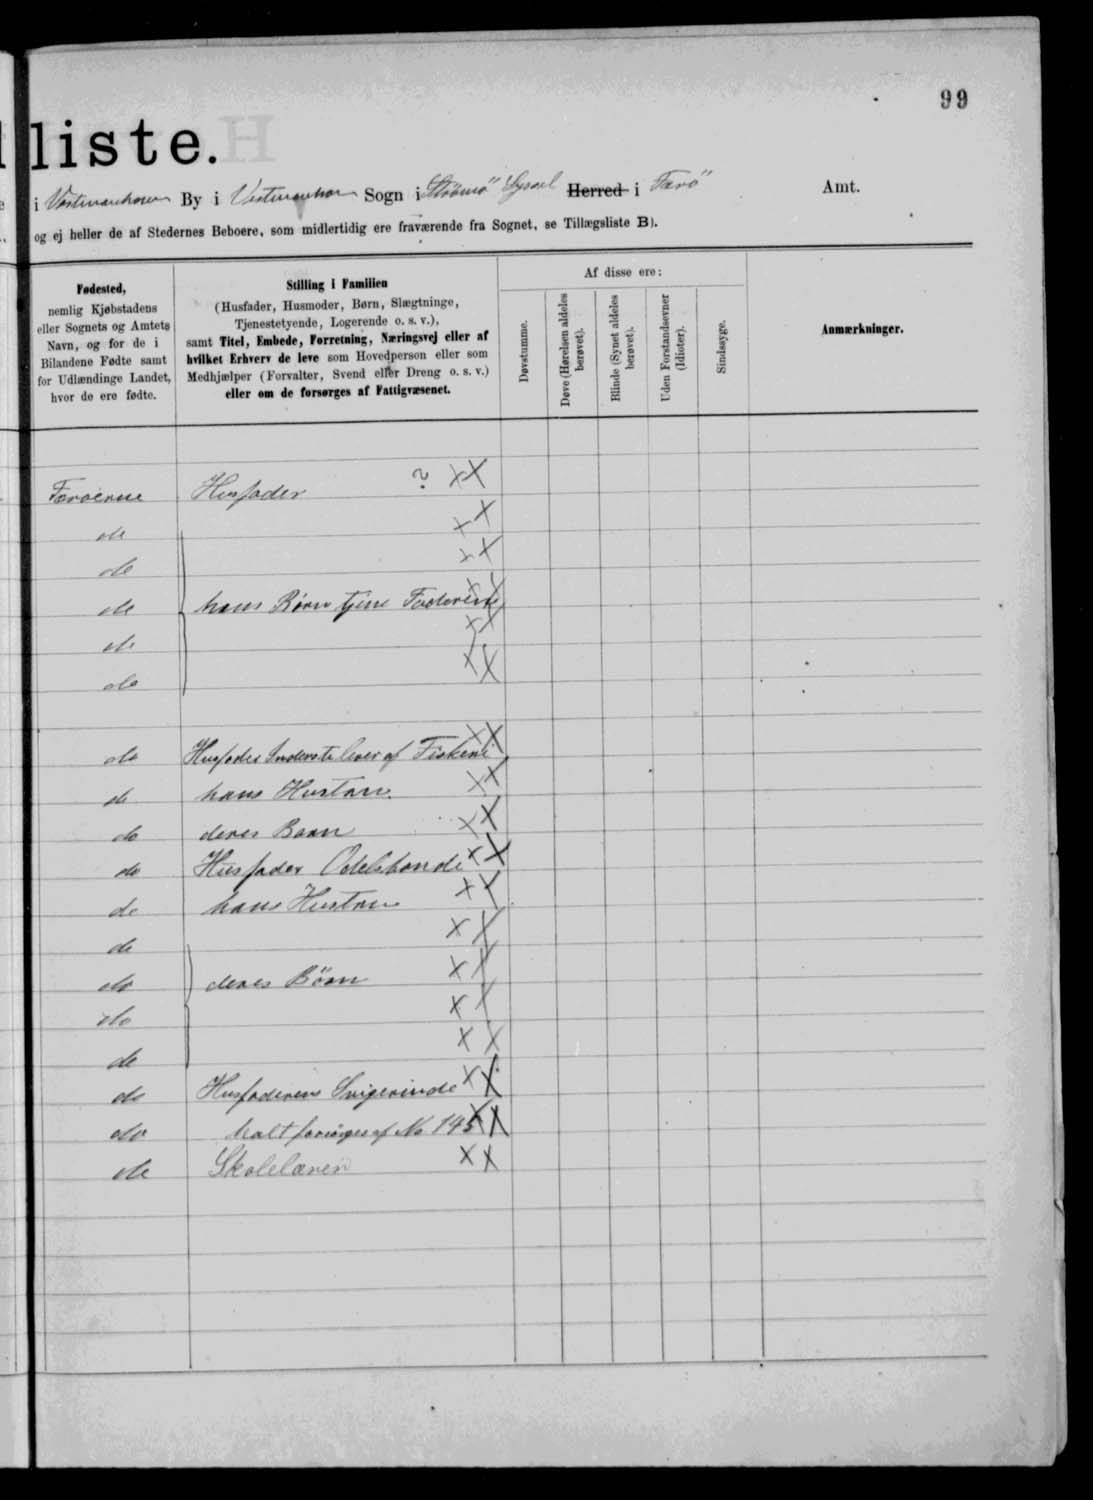 99
liste.
i Vestmanhavn By i Vestmanhavn Sogn i Strömö Syssel Herred i Færö Amt.
og ej heller de af Stedernes Beboere, som midlertidig ere fraværende fra Sognet, se Tillægsliste B).
Fødested,
nemlig Kjøbstadens
eller Sognets og Amtets
Navn, og for de i
Bilandene Fødte samt
for Udlændinge Landet,
hvor de ere fødte.
Stilling i Familien
(Husfader, Husmoder, Børn, Slægtninge,
Tjenestetyende, Logerende o. s. v.),
samt Titel, Embede, Forretning, Næringsvej eller af
hvilket Erhverv de leve som Hovedperson eller som
Medhjælper (Forvalter, Svend eller Dreng o. s. v.)
eller om de forsørges af Fattigvæsenet.
Af disse ere:
Døvstumme.
Døve (Hørelsen aldeles
berøvet).
Blinde (Synet aldeles
berøvet).
Uden Forstandsevner
(Idioter).
Sindssyge.
Anmærkninger.
Færoerne Husfader ? X X
do X X
do X X
do hans Börn tjene Faderen X X
do X X
do X X
do Husfader Inderste lever af Fiskeri X X
do hans Hustru X X
do deres Barn X X
do Husfader Odelsbonde X X
do hans Hustru X X
do X X
do deres Börn X X
do X X
do X X
do Husfaderens Svigerinde X X
do Malt forsörges af No 145 X X
do Skolelærer X X